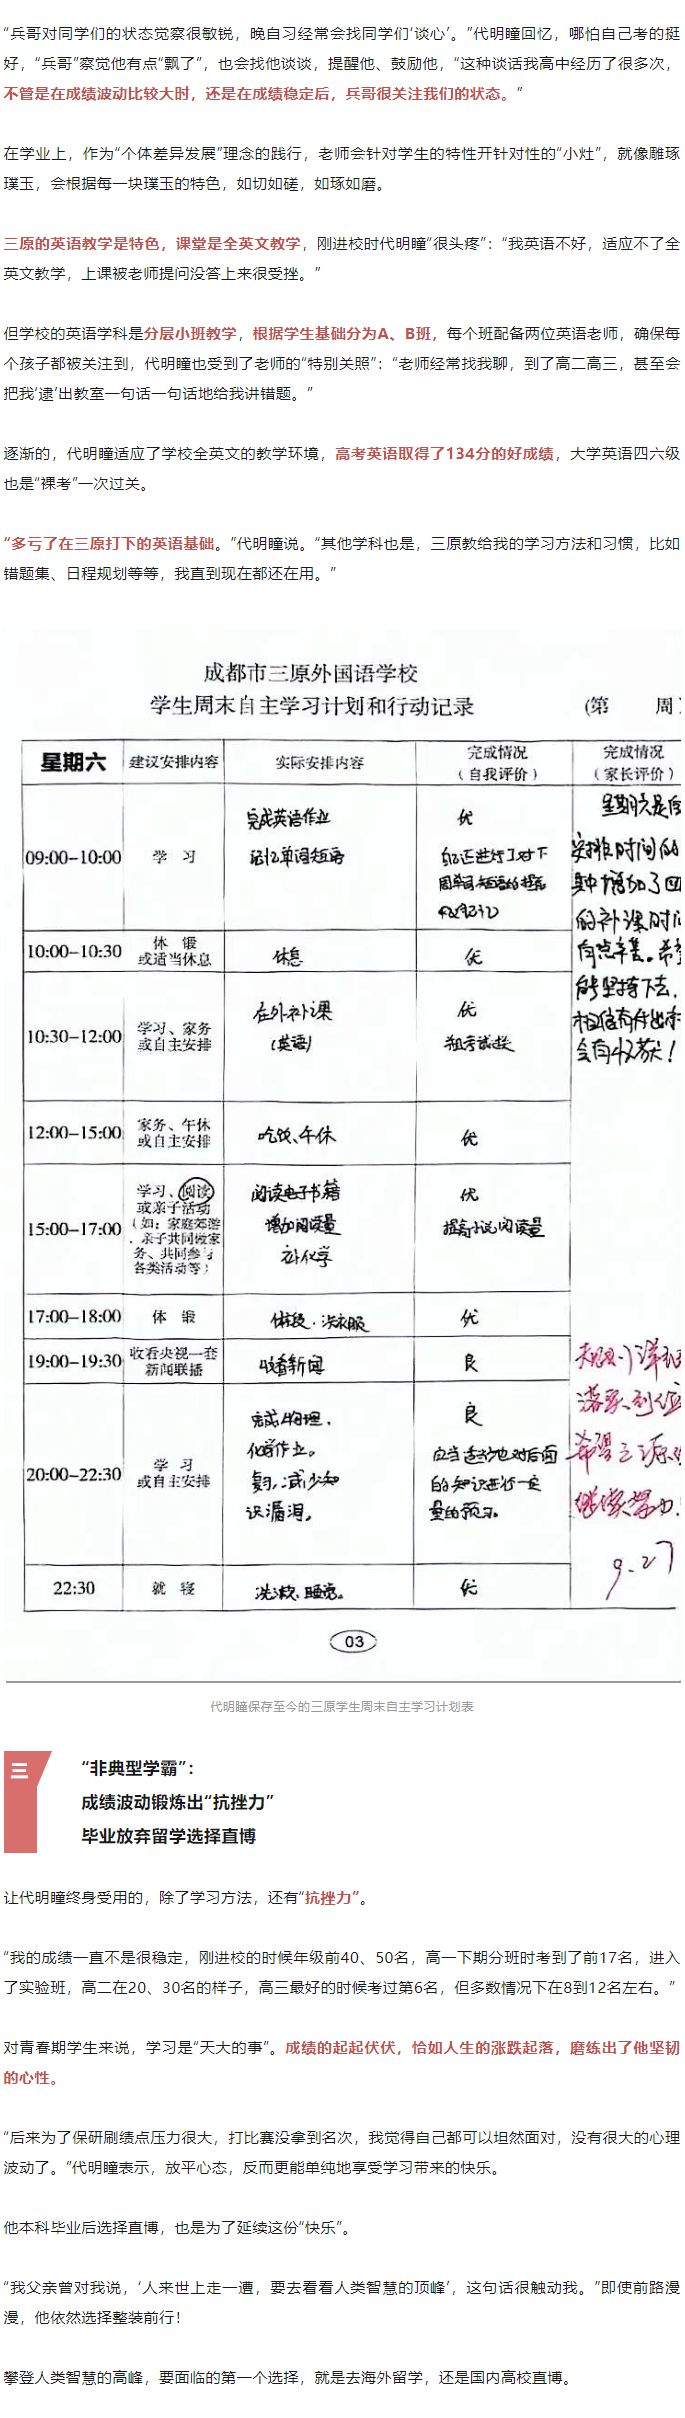 “兵哥对同学们的状态觉察很敏锐，晚自习经常会找同学们‘谈心’。”代明瞳回忆，哪怕自己考的挺
好，“兵哥”察觉他有点“飘了”，也会找他谈谈，提醒他、鼓励他，“这种谈话我高中经历了很多次，
不管是在成绩波动比较大时，还是在成绩稳定后，兵哥很关注我们的状态。”
在学业上，作为“个体差异发展”理念的践行，老师会针对学生的特性开针对性的“小灶”，就像雕琢
璞玉，会根据每一块璞玉的特色，如切如磋，如琢如磨。
三原的英语教学是特色，课堂是全英文教学，刚进校时代明瞳“很头疼”：“我英语不好，适应不了全
英文教学，上课被老师提问没答上来很受挫。”
但学校的英语学科是分层小班教学，根据学生基础分为A、B班，每个班配备两位英语老师，确保每
个孩子都被关注到，代明瞳也受到了老师的“特别关照”：“老师经常找我聊，到了高二高三，甚至会
把我‘逮’出教室一句话一句话地给我讲错题。”
逐渐的，代明瞳适应了学校全英文的教学环境，高考英语取得了134分的好成绩，大学英语四六级
也是“裸考”一次过关。
“多亏了在三原打下的英语基础。”代明瞳说。“其他学科也是，三原教给我的学习方法和习惯，比如
错题集、日程规划等等，我直到现在都还在用。”
成都市三原外国语学校
学生周末自主学习计划和行动记录 (第 周)
星期六 建议安排内容 实际安排内容 完成情况（自我评价） 完成情况（家长评价）
09:00-10:00 学 习 完成英语作业 记忆单词短语 优 自己还进行了对下周单词、短语的提前
10:00-10:30 休 锻 或适当休息 休息 优
10:30-12:00 学习、家务 或自主安排 在外补课 (英语) 优
12:00-15:00 家务、午休 或自主安排 吃饭、午休 优
15:00-17:00 学习、阅读 或亲子活动 （如：家庭郊游、亲子共同做家务、共同参与各类活动等） 阅读电子书籍 增加阅读量 补化学 优 提高小说阅读量
17:00-18:00 体 锻 体锻、洗衣服 优
19:00-19:30 收看央视一套 新闻联播 收看新闻 良
20:00-22:30 学 习 或自主安排 完成物理、化学作业。 复习，减少知识漏洞。 良 应当适当地对后面的知识进行一定量的预习。
22:30 就 寝 洗漱、睡觉。 优
星期六是
安排时间的
其中增加了
的补课时间
有点辛苦。希望
能坚持下去，
相信有付出
会有收获！
9.27
03
代明瞳保存至今的三原学生周末自主学习计划表
三
“非典型学霸”：
成绩波动锻炼出“抗挫力”
毕业放弃留学选择直博
让代明瞳终身受用的，除了学习方法，还有“抗挫力”。
“我的成绩一直不是很稳定，刚进校的时候年级前40、50名，高一下期分班时考到了前17名，进入
了实验班，高二在20、30名的样子，高三最好的时候考过第6名，但多数情况下在8到12名左右。”
对青春期学生来说，学习是“天大的事”。成绩的起起伏伏，恰如人生的涨跌起落，磨练出了他坚韧
的心性。
“后来为了保研刷绩点压力很大，打比赛没拿到名次，我觉得自己都可以坦然面对，没有很大的心理
波动了。”代明瞳表示，放平心态，反而更能单纯地享受学习带来的快乐。
他本科毕业后选择直博，也是为了延续这份“快乐”。
“我父亲曾对我说，‘人来世上走一遭，要去看看人类智慧的顶峰’，这句话很触动我。”即使前路漫
漫，他依然选择整装前行！
攀登人类智慧的高峰，要面临的第一个选择，就是去海外留学，还是国内高校直博。